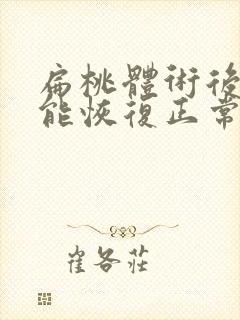 扁桃體術後
能恢復正常
崔各莊